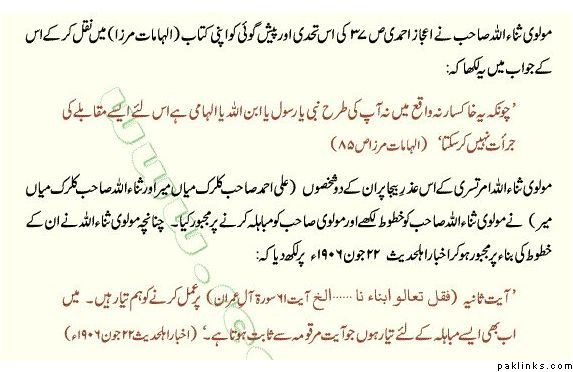 مولوی ثناء اللہ صاحب نے اعجاز احمدی ص ۳۷ کی اس تحدی اور پیش گوئی کو اپنی کتاب (الہامات مرزا) میں نقل کر کے اس
کے جواب میں یہ لکھا کہ:
’چونکہ یہ خاکسار نہ واقع میں نہ آپ کی طرح نبی یا رسول یا ابن اللہ یا الہامی ہے اس لئے ایسے مقابلے کی
جرأت نہیں کر سکتا‘ (الہامات مرزا ص ۸۵)
مولوی ثناء اللہ امرتسری کے اس عذرِ بیجا پر ان کے دو شخصوں (علی احمد صاحب کلرک میاں میر اور ثناء اللہ صاحب کلرک میاں
میر) نے مولوی ثناء اللہ صاحب کو خطوط لکھے اور مولوی صاحب کو مباہلہ کرنے پر مجبور کیا۔ چنانچہ مولوی ثناء اللہ نے ان کے
خطوط کی بناء پر مجبور ہو کر اخبار اہلحدیث ۲۲ جون ۱۹۰۶ء پر لکھ دیا کہ:
’آیت ثانیہ (فقل تعالو ابناء نا ......الخ آیت ۶۱ سورۃ آل عمران) پر عمل کرنے کو ہم تیار ہیں۔ میں
اب بھی ایسے مباہلہ کے لئے تیار ہوں جو آیت مرقومہ سے ثابت ہوتا ہے۔‘ (اخبار اہلحدیث ۲۲ جون ۱۹۰۶ء)
paklinks.com